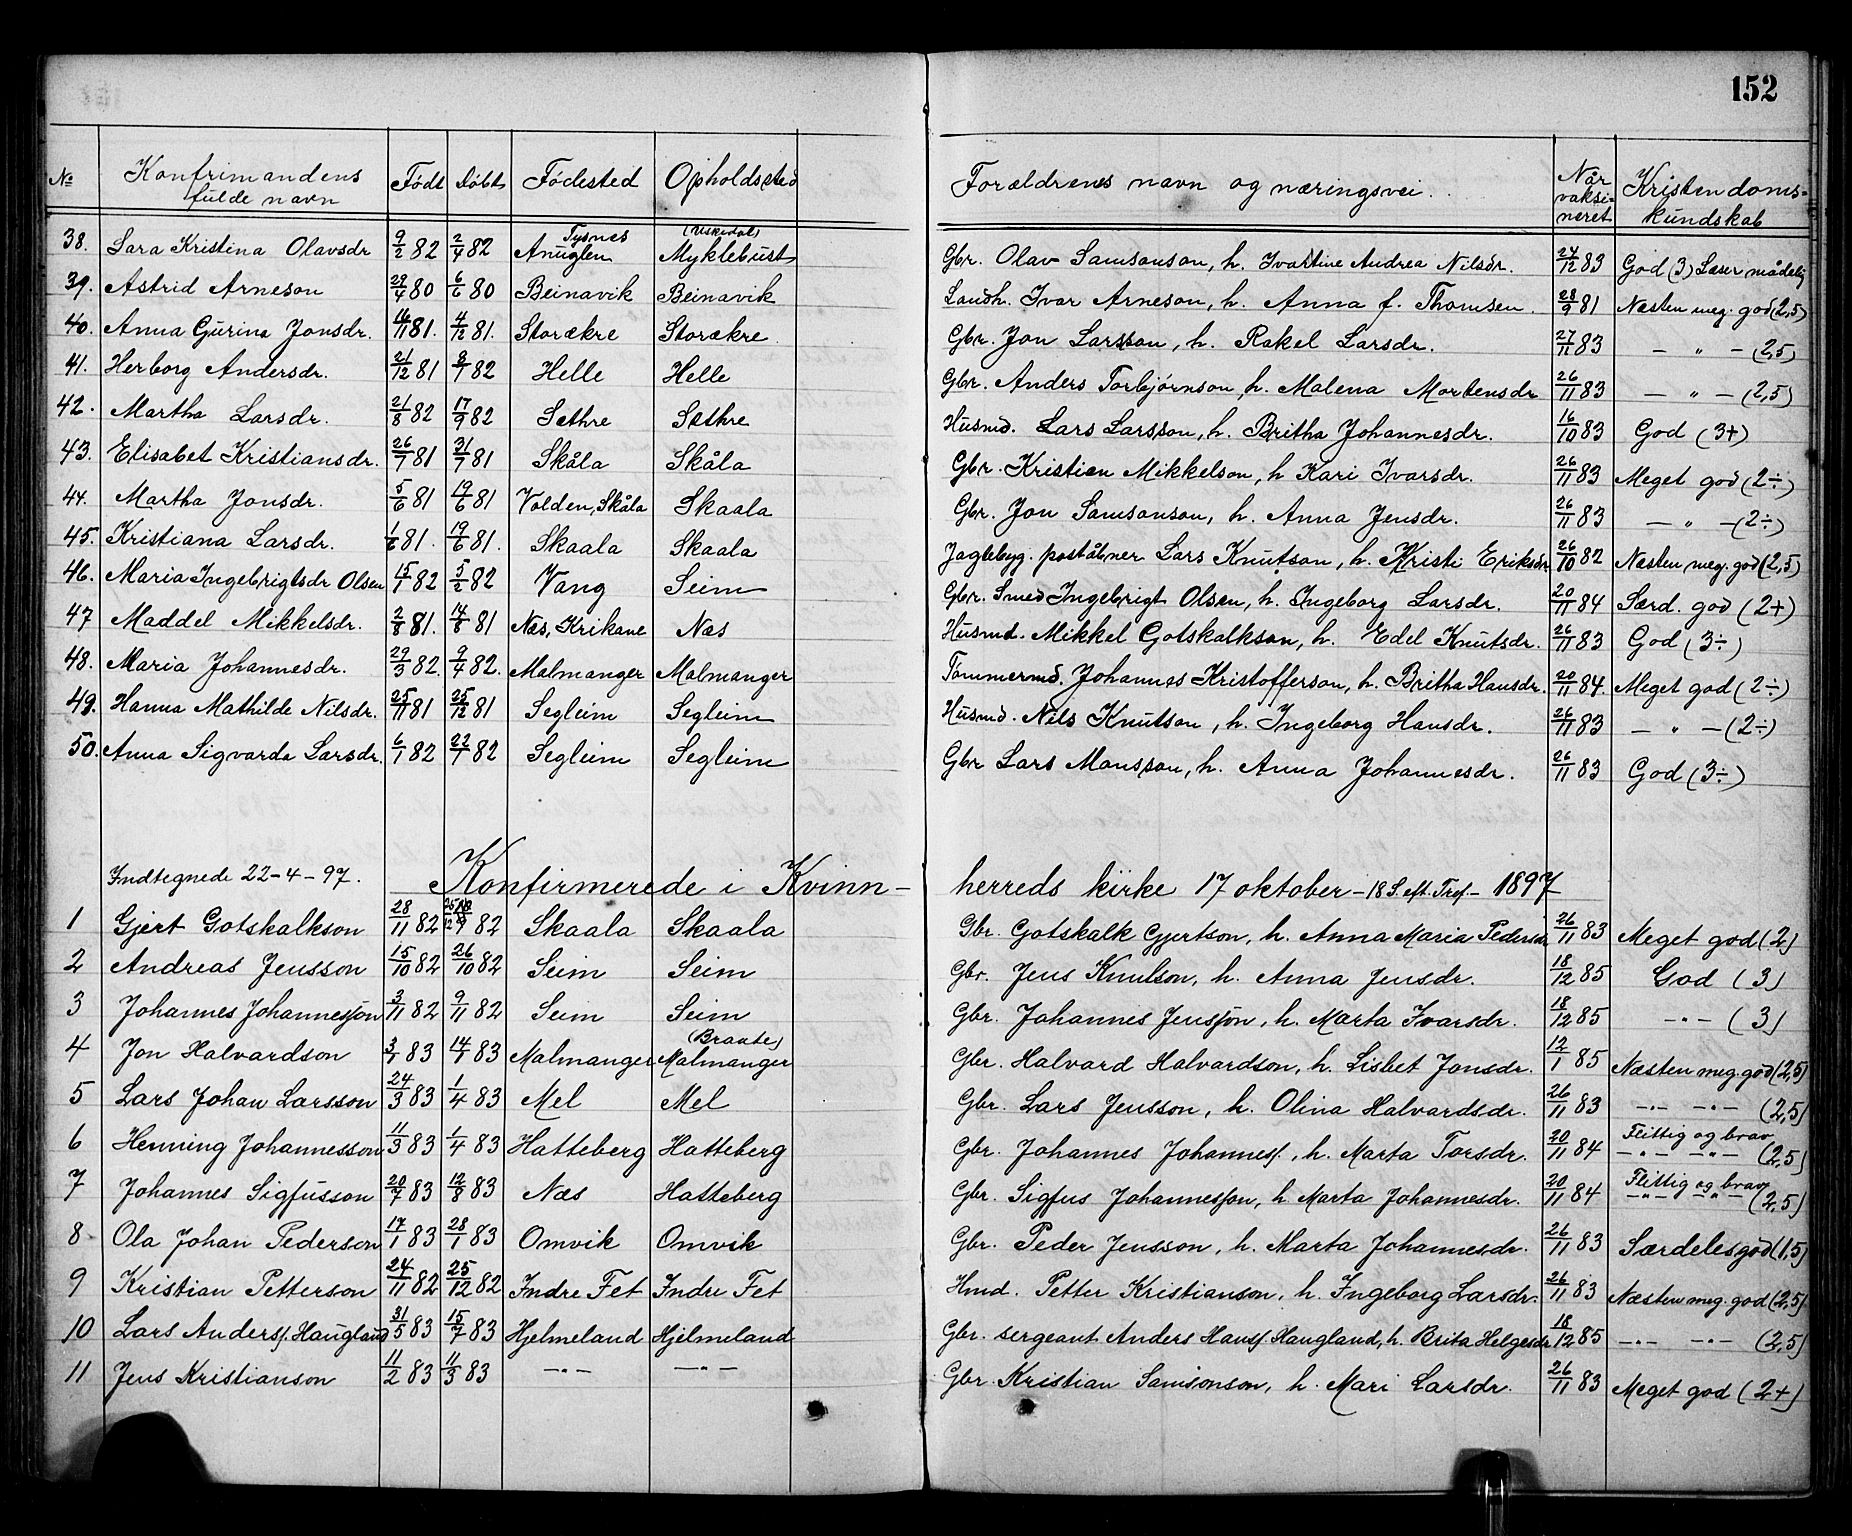 152
№ Konfirmandens fulde navn Født Døbt Fødested Opholdssted Forældrenes navn og næringsvei. Når vaksineret Kristendomskundskab
38. Sara Kristina Olavsdr 9/2 82 2/4 82 Tysnes Anuglen (Uskedal) Myklebust Gbr. Olav Samsonson, h. Ivartine Andrea Nilsdr. 24/12 83 God (3) Læser mådelig
39. Astrid Arneson 29/4 80 6/6 80 Beinavik Beinavik Landh. Ivar Arneson, h. Anna f. Thomsen. 28/9 81 Næsten meg. god (2,5)
40. Anna Gurina Jonsdr. 16/11 81. 4/12 81. Storækre Storækre Gbr. Jon Larsson, h. Rakel Larsdr. 27/11 83 — " — (2,5)
41. Herborg Andersdr. 21/12 81 8/1 82 Helle Helle Gbr. Anders Torbjørnson, h. Malena Mortensdr 26/11 83 — " — (2,5)
42. Martha Larsdr. 21/8 82 17/9 82 Sæthre Sæthre Husmd. Lars Larsson, h. Britha Johannesdr. 16/10 83 God (3+)
43. Elisabet Kristiansdr. 26/7 81 31/7 81 Skåla Skåla Gbr. Kristian Mikkelson, h Kari Ivarsdr. 26/11 83 Meget god (2÷)
44. Martha Jonsdr. 5/6 81 19/6 81 Volden, Skåla Skaala Gbr. Jon Samsonson, h. Anna Jensdr. 26/11 83 — " — (2÷)
45. Kristiana Larsdr. 1/6 81. 19/6 81. Skaala Skaala Jagtebyg. poståbner Lars Knutson, h. Kristi Eriksdr 26/10 82 Næsten meg. god (2,5)
46. Maria Ingebrigtsdr Olsen 15/1 82 5/2 82 Vang Seim Gbr. Smed Ingebrigt Olsen, h. Ingeborg Larsdr. 20/11 84 Særd. god (2+)
47 Maddel Mikkelsdr. 2/8 81. 14/8 81 Næs, Krikane Næs Husmd. Mikkel Gotskalkson, h. Edel Knutsdr. 26/11 83 God (3÷)
48. Maria Johannesdr. 29/3 82. 9/4 82. Malmanger Malmanger Tømmermd. Johannes Kristofferson, h. Britha Hansdr. 20/11 84. Meget god (2÷)
49. Hanna Mathilde Nilsdr. 25/11 81 25/12 81 Segleim Segleim Husmd. Nils Knutson, h. Ingeborg Hansdr. 26/11 83 — " — (2÷)
50. Anna Sigvarda Larsdr. 6/1 82 22/1 82 Segleim Segleim Gbr Lars Monsson, h. Anna Johannesdr. 26/11 83 God (3÷)
Indtegnede 22-4-97. Konfirmerede i Kvinnherreds kirke 17 oktober – 18 S. eft. Tref. – 1897
1 Gjert Gotskalkson 28/11 82 25/12 82 Skaala Skaala Gbr. Gotskalk Gjertson, h. Anna Maria Pedersdr 26/11 83 Meget god (2)
2 Andreas Jensson 15/10 82 26/10 82 Seim Seim Gbr. Jens Knutson, h. Anna Jensdr. 18/12 85 God (3)
3 Johannes Johannesson 3/11 82 9/11 82 Seim Seim Gbr. Johannes Jensson, h. Marta Ivarsdr. 18/12 85 — " — (3)
4 Jon Halvardson 3/1 83 14/1 83 Malmanger (Braate) Malmanger Gbr. Halvard Halvardson, h. Lisbet Jonsdr. 12/1 85 Næsten meg. god (2,5)
5 Lars Johan Larsson 24/3 83 1/4 83 Mel Mel Gbr. Lars Jensson, h. Olina Halvardsdr. 26/11 83 — " — — " — (2,5)
6 Henning Johannesson 11/3 83 1/4 83 Hatteberg Hatteberg Gbr. Johannes Johanness., h. Marta Torsdr. 20/11 84 Flittig og brav — " — — " — (2,5)
7 Johannes Sigfusson 20/7 83 12/8 83 Næs Hatteberg Gbr. Sigfus Johannesson, h Marta Johannesdr. 20/11 84 Flittig og brav — " — — " — (2,5)
8 Ola Johan Pederson 17/1 83 28/1 83 Omvik Omvik Gbr. Peder Jensson, h. Marta Johannesdr. 26/11 83 Særdeles god (1,5)
9 Kristian Petterson 24/11 82 25/12 82 Indre Fet Indre Fet Hmd. Petter Kristianson, h. Ingeborg Larsdr. 26/11 83 Næsten meg. god (2,5)
10 Lars Anderss. Haugland 31/5 83 15/7 83 Hjelmeland Hjelmeland Gbr. sergeant Anders Hanss. Haugland, h. Brita Helgesdr 18/12 85 — " — — " — (2,5)
11 Jens Kristianson 11/2 83 11/3 83 — " — — " — Gbr. Kristian Samsonson, h. Mari Larsdr. 26/11 83 Meget god (2+)